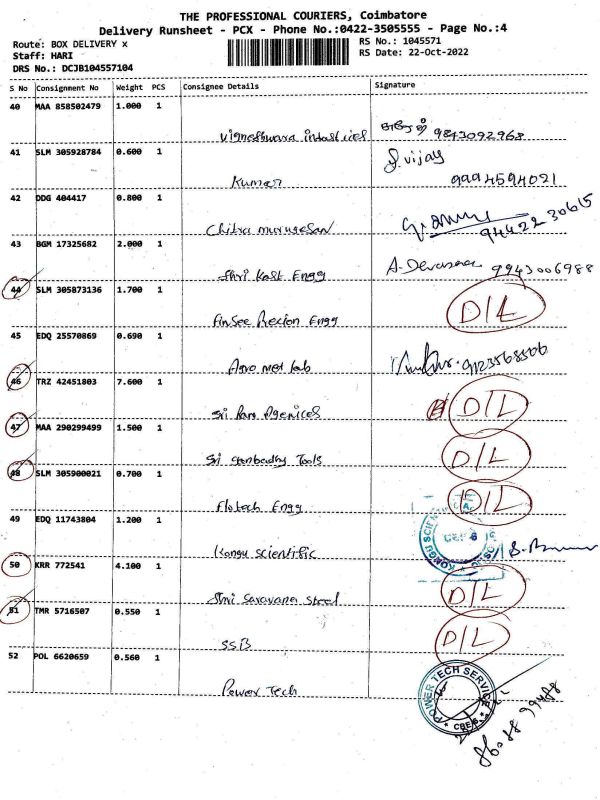 THE PROFESSIONAL COURIERS, Coimbatore
Delivery Runsheet - PCX - Phone No.:0422-3505555 - Page No.:4
Route: BOX DELIVERY x
RS No.: 1045571
Staff: HARI
RS Date: 22-Oct-2022
DRS No.: DCJB104557104
S No Consignment No Weight PCS Consignee Details Signature
40 MAA 858502479 1.000 1
Vigneshwara industries 9843092968
41 SLM 305928784 0.600 1
S. vijay
Kumar 9994594021
42 DDG 404417 0.800 1
Chitra murugesan 94422 30615
43 BGM 17325682 2.000 1
Shri Kast Engg 9943006988
44 SLM 305873136 1.700 1
D/L
Finsee Precion Engg
45 EDQ 25570869 0.690 1
Agro met lab 9123568506
46 TRZ 42451803 7.600 1
D/L
Sri Ram Agenices
47 MAA 290299499 1.500 1
D/L
Sri Tools
48 SLM 305900021 0.700 1
D/L
Flotech Engg
49 EDQ 11743804 1.200 1
KONGU SCIENTIFIC
Kongu scientific
50 KRR 772541 4.100 1
D/L
Shri Saravana Steel
51 TMR 5716507 0.550 1
D/L
SSB
52 POL 6620659 0.560 1
POWER TECH SERVICE
CBE-6
Power Tech